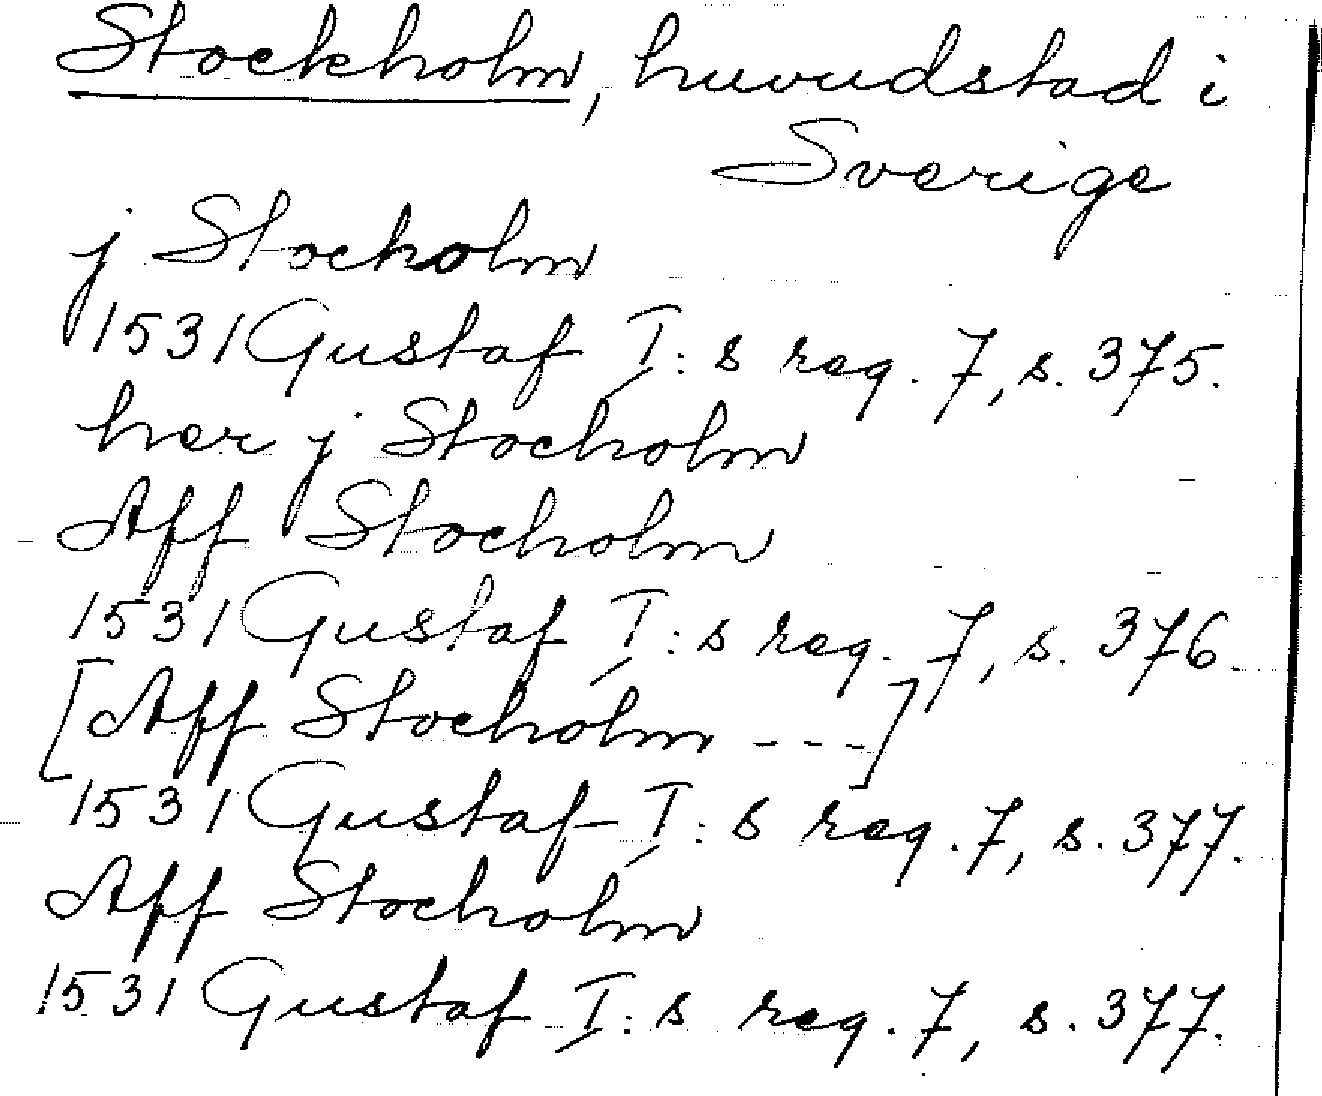 Stockholm, huvudstad i
Sverige
j Stocholm
1531 Gustaf I:s reg. 7, s. 375.
her j Stocholm
Aff Stocholm
1531 Gustaf I:s reg. 7, s. 376
[Aff Stocholm ---]
1531 Gustaf I:s reg. 7, s. 377.
Aff Stocholm
1531 Gustaf I:s reg. 7, s. 377.